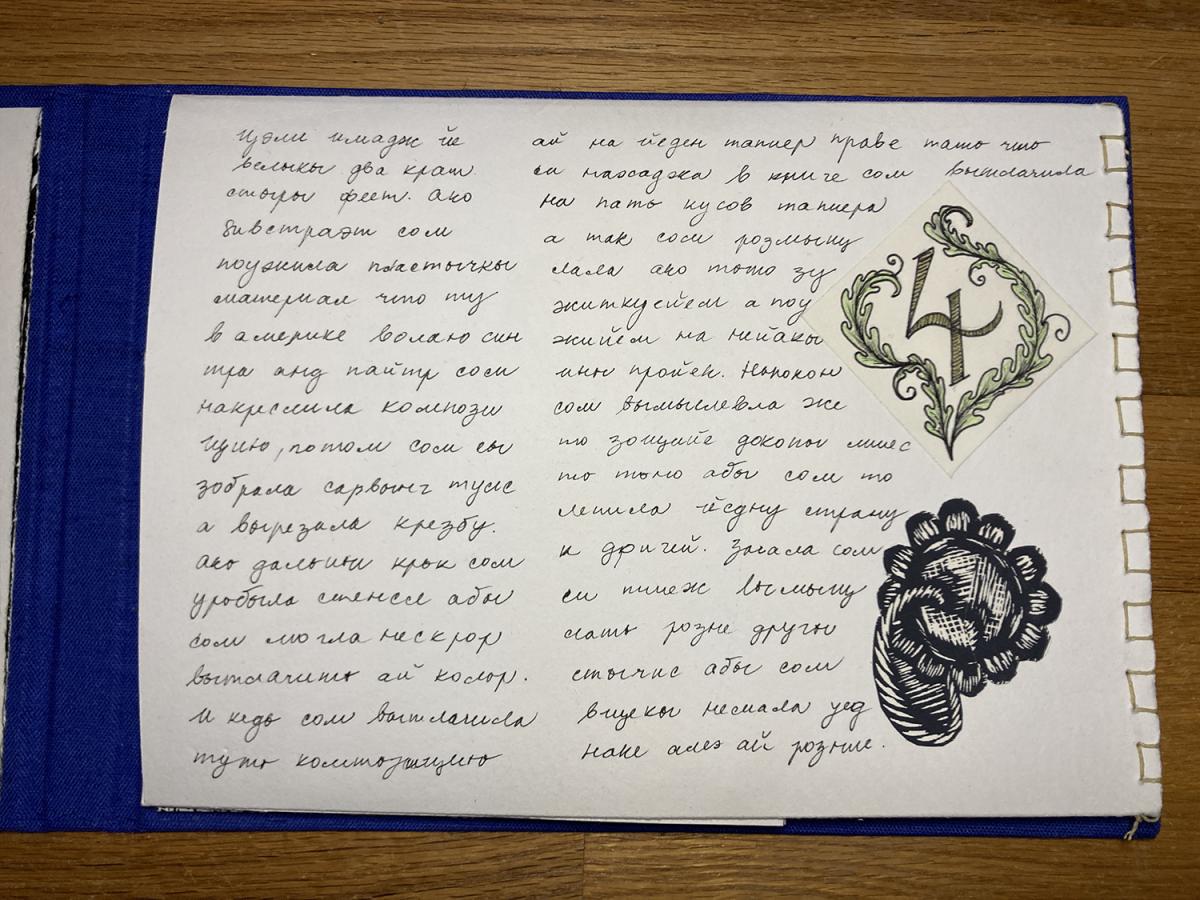 цэли имадж йе
велыкы два крат
стыры феет. ако
субстраэт сом
поужила пластычкы
материал что ту
в америке волаю син
тра анд пайтр сом
накреслила компози
цию, потом сом сы
зобрала сарвынг тулс
а вырезала крезбу.
ако дальшы крок сом
уробыла стенсл абы
сом могла нескрор
вытлачить ай колор.
И кедь сом вытлачила
туто композицию
ай на йеден папиер праве тато что
си находжа в книге сом вытлачила
на пать кусов папиера
а так сом розмышу
лала ако тото зу
житкуейем а поу
жийем на нейакы
ины пройек. Напокон
сом вымыслевла же
то зошийе докопы миес
то тыто абы сом то
лепила йедну страну
к другей. Зачала сом
си тиеж вымышу
лать розне другы
стычис абы сом
вшекы немала йед
наке алеэ ай розные.
4